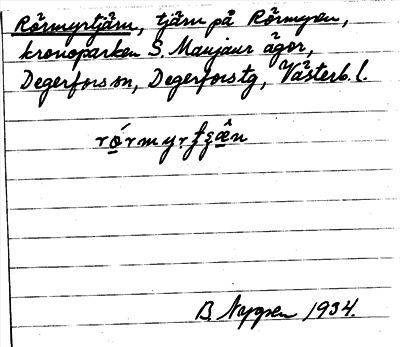 Rörmyrtjärn, tjärn på Rörmyren,
kronoparken S. Manjaur ägor,
Degerfors sn, Degerfors tg, Västerb. l.
B. 1934.